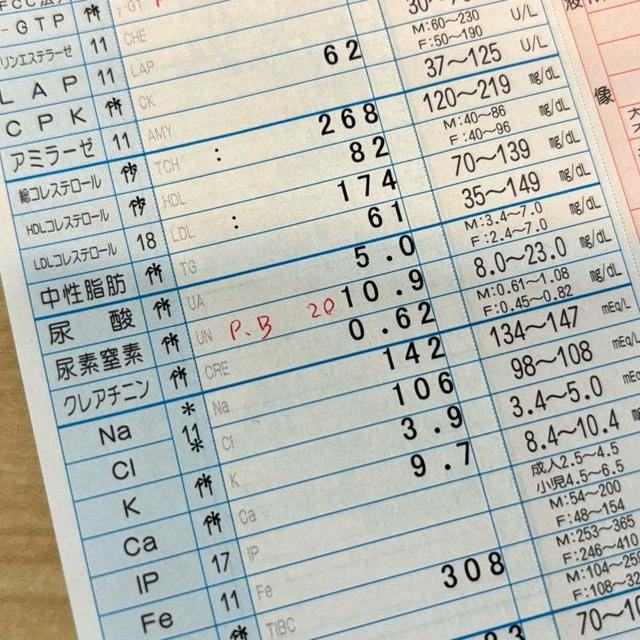 -GTP 11
リンエステラーゼ 11 CHE M:60〜230 F:50〜190 U/L
LAP 11 LAP 62 37〜125 U/L
CPK CK
アミラーゼ 11 AMY 268 120〜219 mg/dL
総コレステロール TCH : 82 M:40〜86 F:40〜96 mg/dL
HDLコレステロール HDL 174 70〜139 mg/dL
LDLコレステロール 18 LDL : 61 35〜149 mg/dL
中性脂肪 TG 5.0 M:3.4〜7.0 F:2.4〜7.0 mg/dL
尿酸 UA 10.9 8.0〜23.0 mg/dL
尿素窒素 UN P.B 20 0.62 M:0.61〜1.08 F:0.45〜0.82 mg/dL
クレアチニン CRE 142 134〜147 mEq/L
Na * Na 106 98〜108 mEq/L
Cl 11 * Cl 3.9 3.4〜5.0
K K 9.7 8.4〜10.4
Ca Ca 成人2.5〜4.5 小児4.5〜6.5
IP 17 IP M:54〜200 F:48〜154
Fe 11 Fe 308 M:253〜365 F:246〜410
TIBC M:104〜
F:108〜
70〜
像